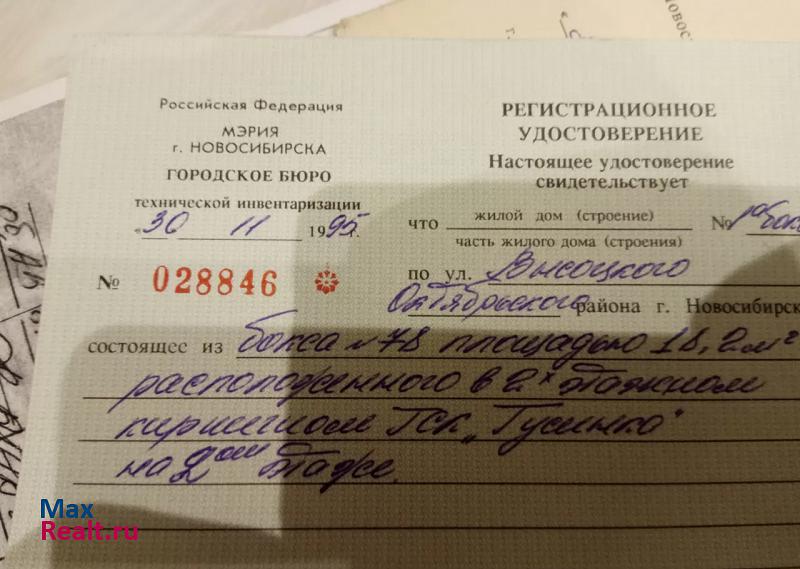 Российская Федерация
МЭРИЯ
г. НОВОСИБИРСКА
ГОРОДСКОЕ БЮРО
технической инвентаризации
«30 11 1995 г.
№ 028846
РЕГИСТРАЦИОННОЕ
УДОСТОВЕРЕНИЕ
Настоящее удостоверение
свидетельствует
что жилой дом (строение) №
часть жилого дома (строения)
по ул. Высоцкого
Октябрьского района г. Новосибирск
состоящее из бокса № 78 площадью 18,2 м²
расположенного в 2х этажном
кирпичном ГСК „Гусинка"
на 2ом этаже.
Max
Realt.ru